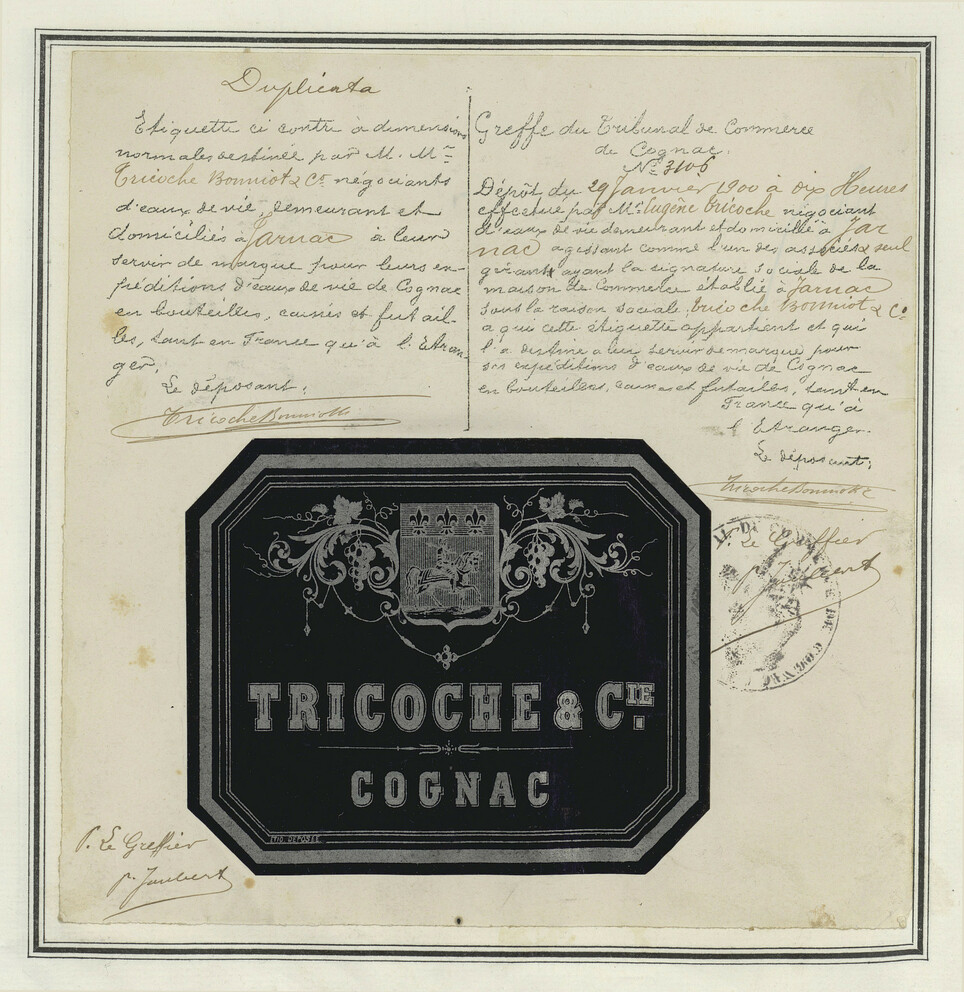 Duplicata
Etiquette ci contre à dimensions
normales destinée par M. M.rs
Tricoche Bonniot & Co négociants
d'eaux de vie, demeurant et
domiciliés à Jarnac à leur
servir de marque pour leurs ex-
péditions d'eaux de vie de Cognac
en bouteilles, caisses et futail-
les, tant en France qu'à l'Etran-
ger.
Le déposant:
Tricoche Bonniot &
Greffe du Tribunal de Commerce
de Cognac.
No 3106
Dépôt du 29 Janvier 1900 à dix Heures
effectué par Mr Eugène Tricoche négociant
d'eaux de vie demeurant et domicilié à Jar
nac agissant comme l'un des associés & seul
gérant ayant la signature sociale de la
maison de Commerce établie à Jarnac
sous la raison sociale Tricoche Bonniot & Co
à qui cette étiquette appartient et qui
l'a destine a leur servir de marque pour
ses expéditions d'eaux de vie de Cognac
en bouteilles, caisses et futailles, tant en
France qu'à
l'Etranger.
Le déposant:
Tricoche Bonniot &
P. Le Greffier
p. Jaubert
DE COGNAC
TRICOCHE & CIE.
COGNAC
DÉPOSÉE
P. Le Greffier
p. Jaubert